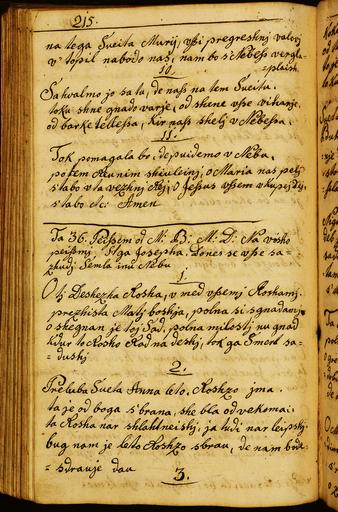 215.
na tega Sueita Murij, vsi pregreshnj valovj
v' topil nabodo nas, nam bo s'Nebess vergla
=plaish.
10.
Sahvalmo je sa ta, de nass na tem Sueita.
toku skne gnado varje, od skene vse vikanje,
od barke telessa, kir nass shelj v Nebessa.
11.
Tok pomagala bo: depuidemo v Neba,
potem kunim shiuleinj, o Maria nas pelj
s'tabo v ta vezhnj Raj, O Jesus vssem vkupej daj,
s'labo etc: Amen
Ta 36. Peissem od M: B: M: D: Na visho
peissmj, Aga Josepha, Dones se vse sa=
zhudj Semla inu Nebu.
1.
O tj Deshezka Rosha, v'med vssemj Roshamj.
prezhista Matj boshja, polna si sgnadamj
o shegnan je toj Sad, polna milosti nu gnad
kdur to Rosho Rad na deshj, tok ga Smert sa=
=dushj
2.
Preluba Sueta Anna leto, Roshzo jma.
ta je od boga s'brana, she bla od vekoma:
ta Rosha nar shlahtneishj, ja tudi nar leipshj
bug nam je leto Roshzo sbrau, de nam bode
=sdrauje dau
3.